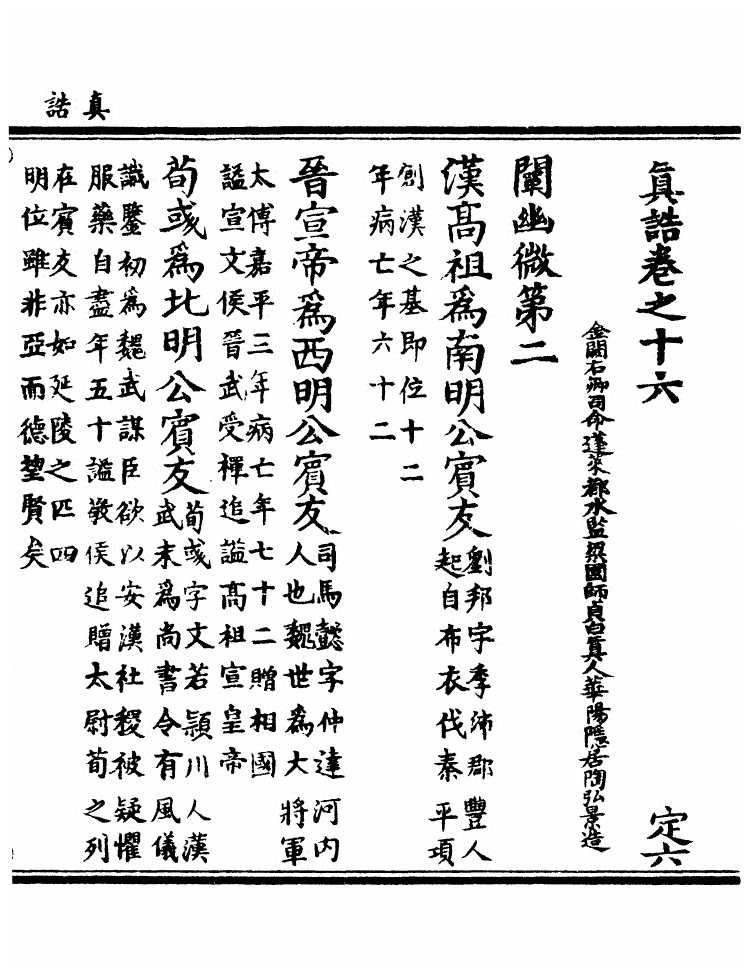 真誥
眞誥卷之十六 定六
金闕右卿司命蓬萊都水監梁國師貞白眞人華陽隱居陶弘景造
闡幽微第二
漢髙祖爲南明公賓友 劉邦字季沛郡豐人
起自布衣伐秦平項
創漢之基即位十二
年病亡年六十二
晉宣帝爲西明公賓友 司馬懿字仲達河内
人也魏世爲大將軍
太傅嘉平三年病亡年七十二贈相國
謚宣文侯晉武受禪追謚髙祖宣皇帝
荀彧爲北明公賓友 荀彧字文若潁川人漢
武末爲尚書令有風儀
識鑒初爲魏武謀臣欲以安漢社稷被疑懼
服藥自盡年五十謚敬侯追贈太尉荀之列
在賓友亦如延陵之匹四
明位雖非亞而德望賢矣